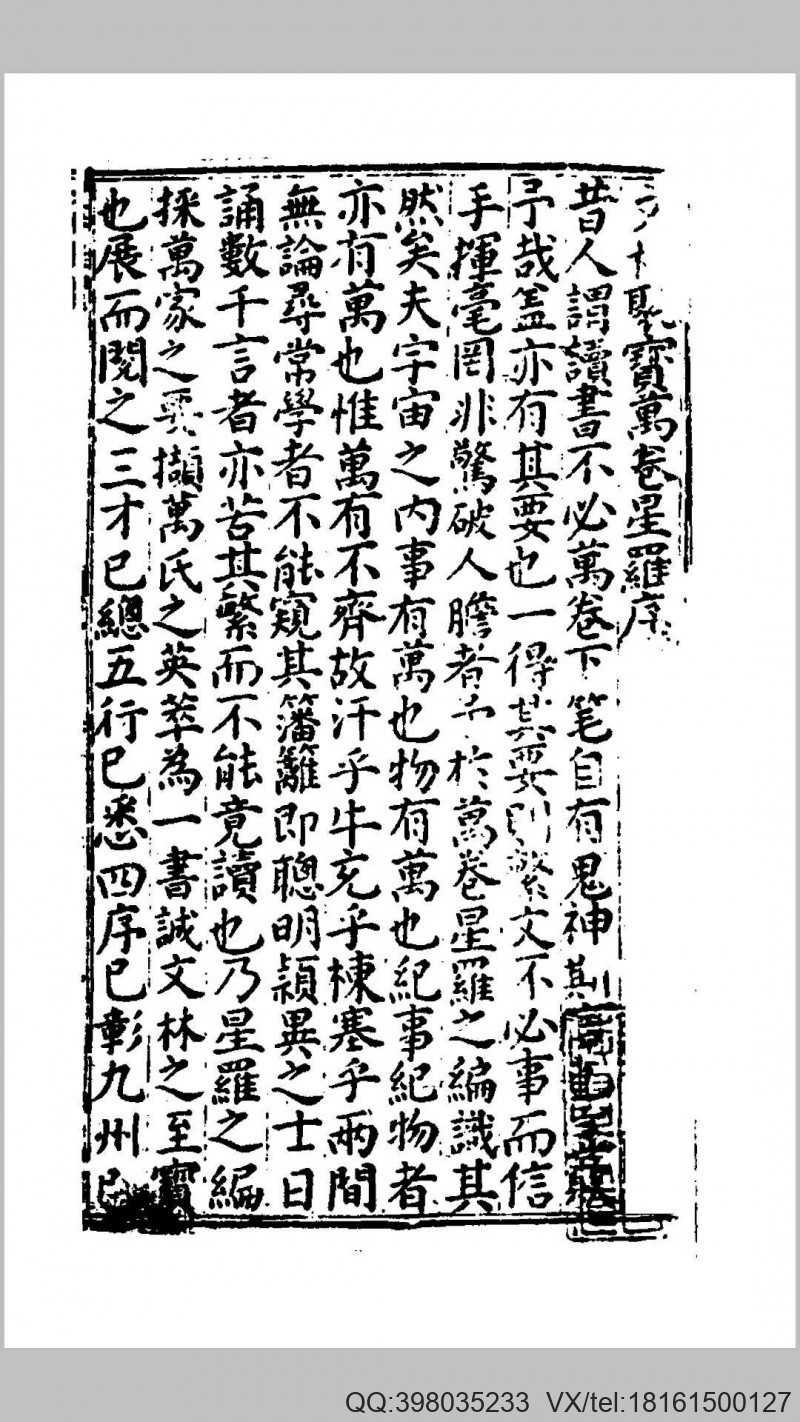 聚寶萬卷星羅序
昔人謂讀書不必萬卷下笔自有鬼神其
予哉盖亦有其要也一得其要則繁文不必事而信
手揮毫罔非驚破人膽者 於萬卷星羅之編識其
然矣夫宇宙之内事有萬也物有萬也紀事紀物者
亦有萬也惟萬有不齊故汗乎牛充乎棟塞乎兩間
無論尋常學者不能窺其籓籬即聰明頴異之士日
誦數千言者亦苦其繁而不能竟讀也乃星羅之編
採萬家之要擷萬氏之英萃為一書誠文林之至寶
也展而閱之三才已總五行已悉四序已彰九州已
QQ:398035233 VX/tel:18161500127